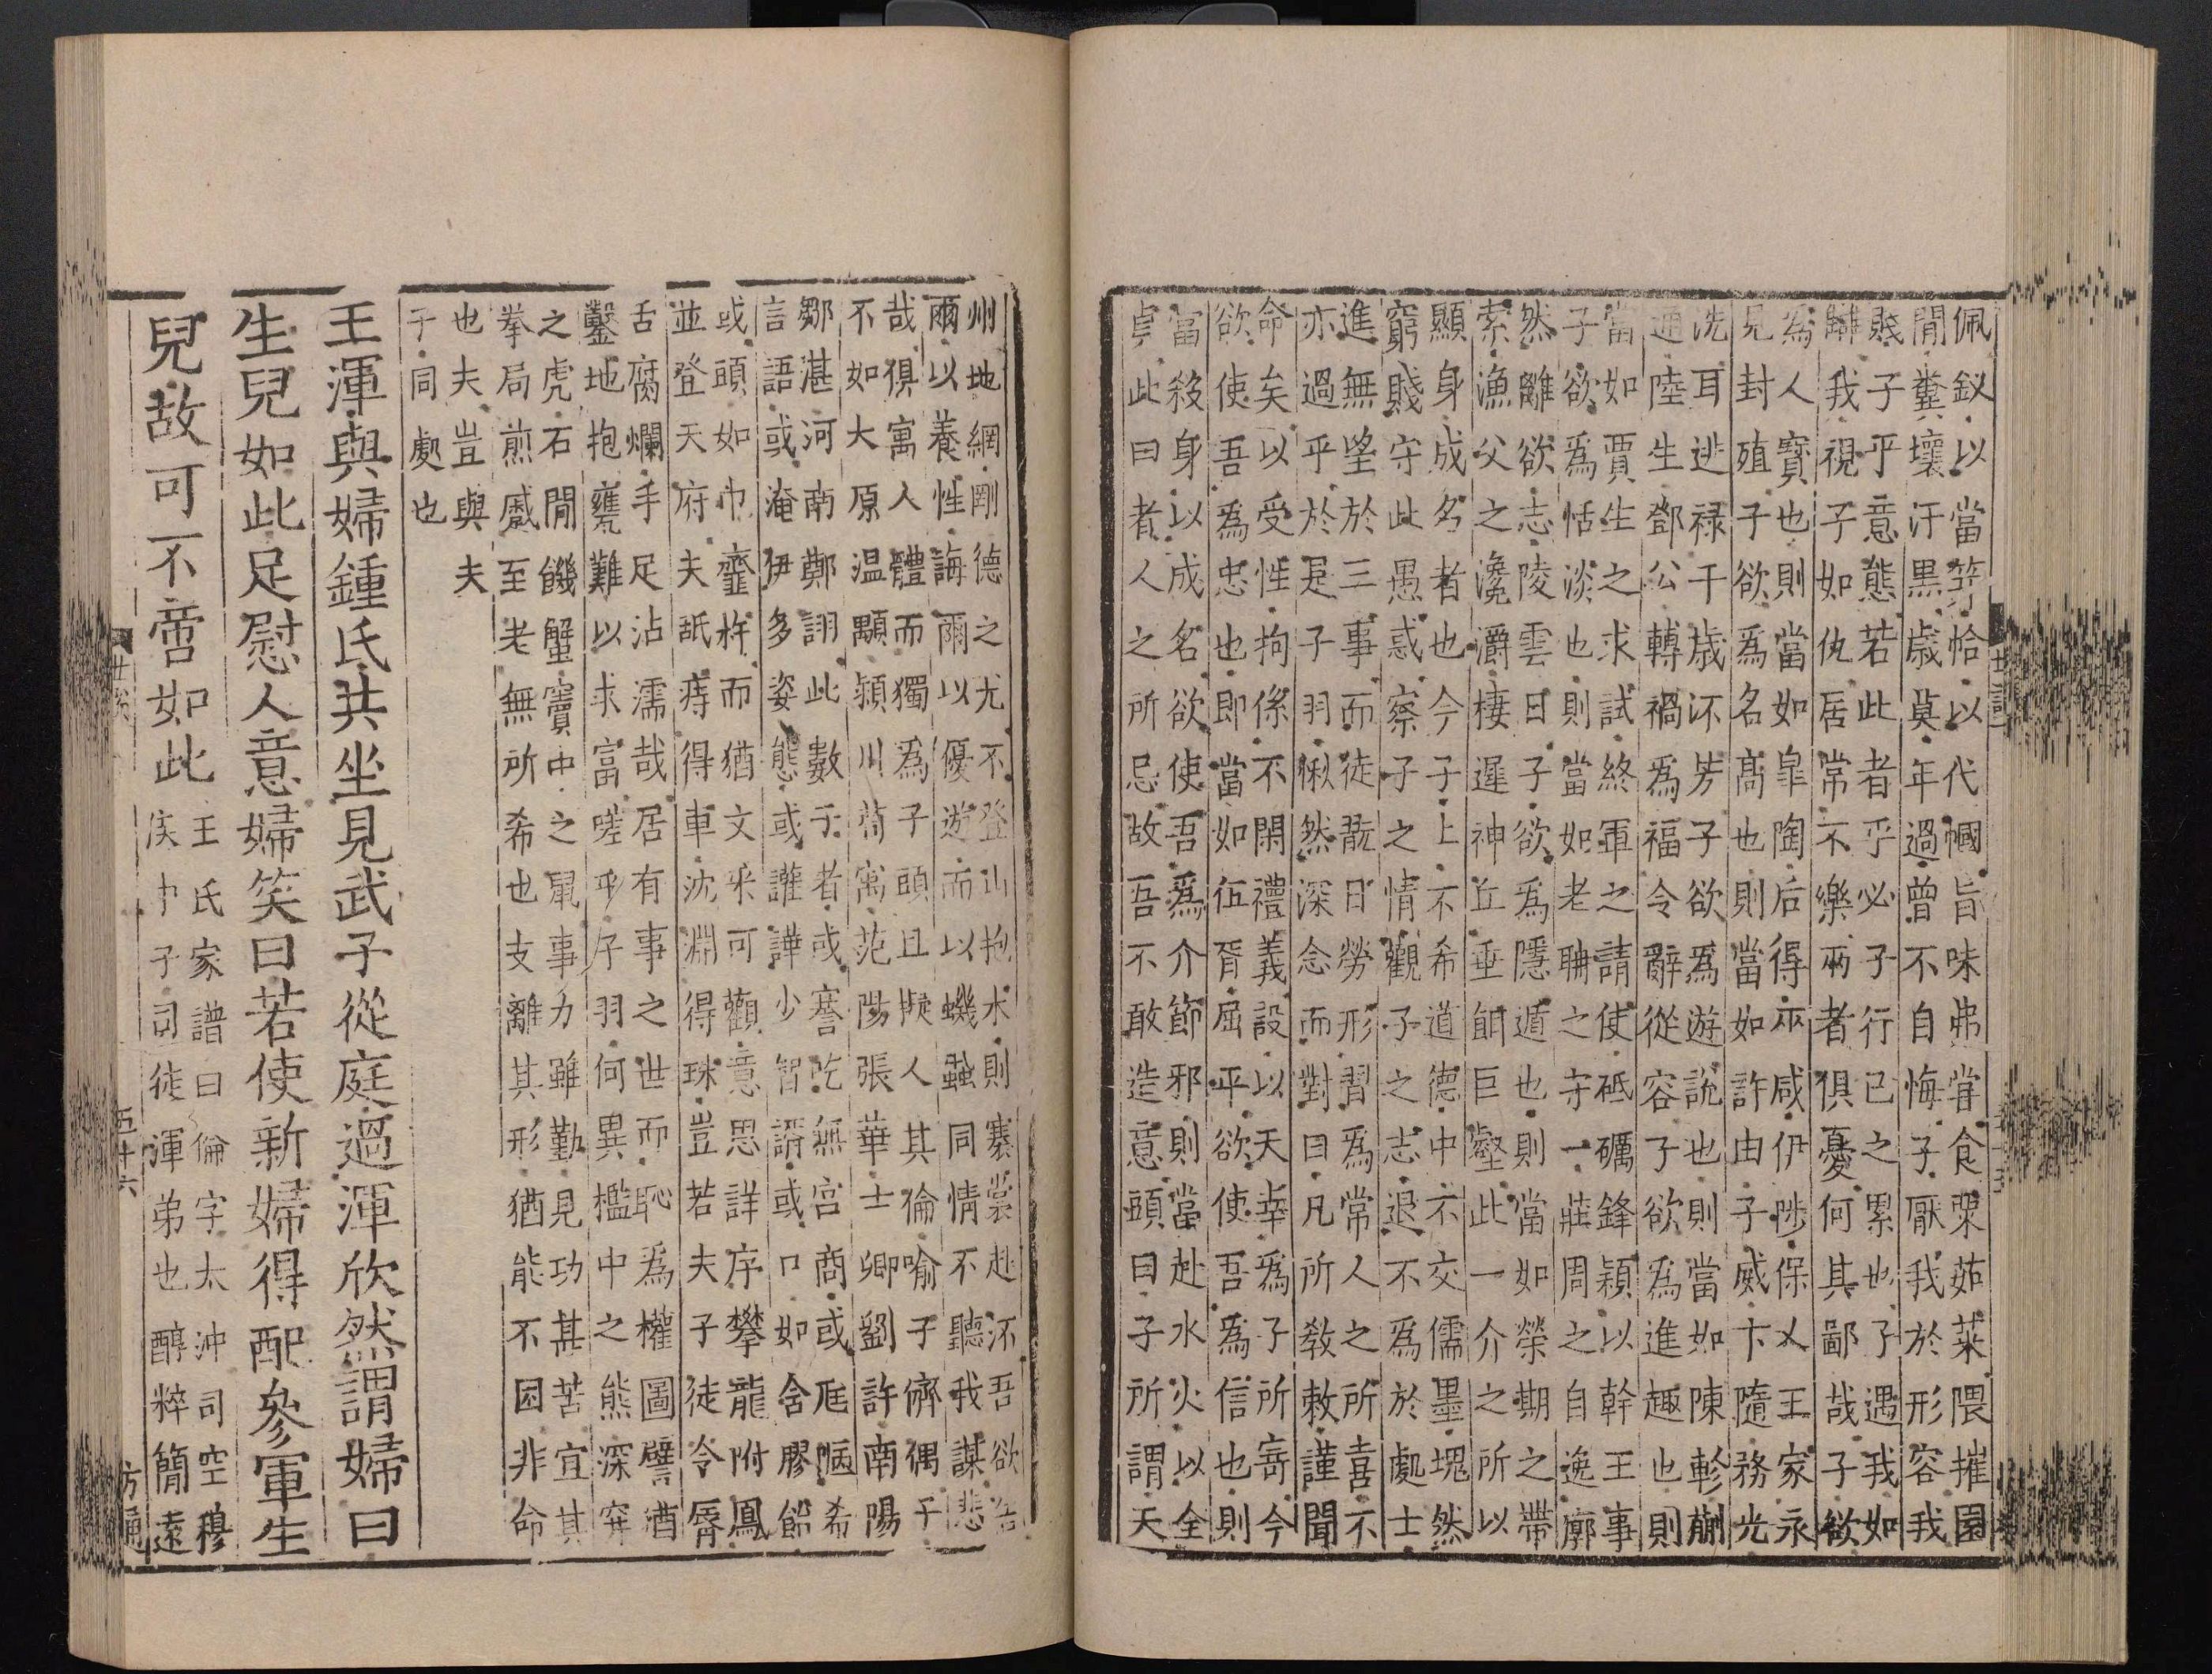 佩釵以當笄帢以代幗旨味弗甞食粟茹菜隈摧園
閒糞壤汙黒歳莫年過曽不自悔子厭我於形容我
賤子乎意態若此者乎必子行已之累也子遇我如
讎我視子如仇居常不樂兩者俱憂何其鄙哉子欲
為人寳也則當如皐陶后得巫咸伊陟保乂王家永
見封殖子欲爲名髙也則當如許由子威卞隨務光
洗耳逃禄千歳流芳子欲爲遊説也則當如陳軫蒯
通陸生鄧公轉禍爲福令辭從容子欲為進趣也則
當如賈生之求試終軍之請使砥礪鋒穎以幹王事
子欲爲恬淡也則當如老耼之守一莊周之自逸廓
然離欲志陵雲日子欲爲隱遁也則當如榮期之帶
索漁父之瀺灂棲遲神丘垂餌巨壑此一介之所以
顯身成名者也今子上不希道德中不交儒墨塊然
窮賤守此愚惑察子之情觀子之志退不爲於處士
進無望於三事而徒翫日勞形習爲常人之所喜不
亦過乎於是子羽愀然深念而對曰凡所敎敕謹聞
命矣以受性拘係不閑禮義設以天幸爲子所寄今
欲使吾爲忠也即當如伍胥屈平欲使吾爲信也則
當殺身以成名欲使吾爲介節邪則當赴水火以全
貞此曰者人之所忌故吾不敢造意頭曰子所謂天
州地網剛德之尤不登山抱木則褰裳赴流吾欲告
爾以養性誨爾以優遊而以蟣蝨同情不聽我謀悲
哉俱寓人體而獨爲子頭且擬人其倫喻子儕偶子
不如大原温顒潁川荀㝢范陽張華士卿劉許南陽
鄒湛河南鄭詡此數子者或謇吃無宫商或尫㾄希
言語或淹伊多姿態或讙譁少智諝或口如含膠飴
或頭如巾虀杵而猶文采可觀意思詳序攀龍附鳳
並登天府夫舐痔得車沈淵得珠豈若夫子徒令脣
舌腐爛手足沾濡哉居有事之世而恥爲權圖譬酒
鑿地抱甕難以求富嗟乎子羽何異檻中之熊深穽
之虎石閒饑蟹竇中之鼠事力雖勤見功甚苦宜其
拳局煎蹙至老無所希也支離其形猶能不困非命
也夫豈與夫
子同處也
王渾與婦鍾氏共坐見武子從庭過渾欣然謂婦曰
生兒如此足慰人意婦笑曰若使新婦得配參軍生
兒故可不啻如此
王氏家譜曰倫字太沖司空穆
侯中子司徒渾弟也醇粹簡遠
五十六
方通